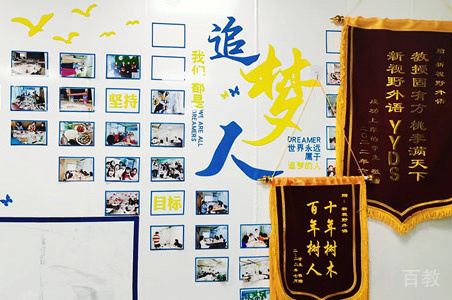 追
梦
人
我们 都是
WE ARE ALL
DREAMERS
坚持
目标
DREAMER
世界永远
属于
追梦的人
赠：新视野外语
教授固有方 桃李满天下
新视野外语YYDS
赠：新视野外语
十年树木
百年树人
百教